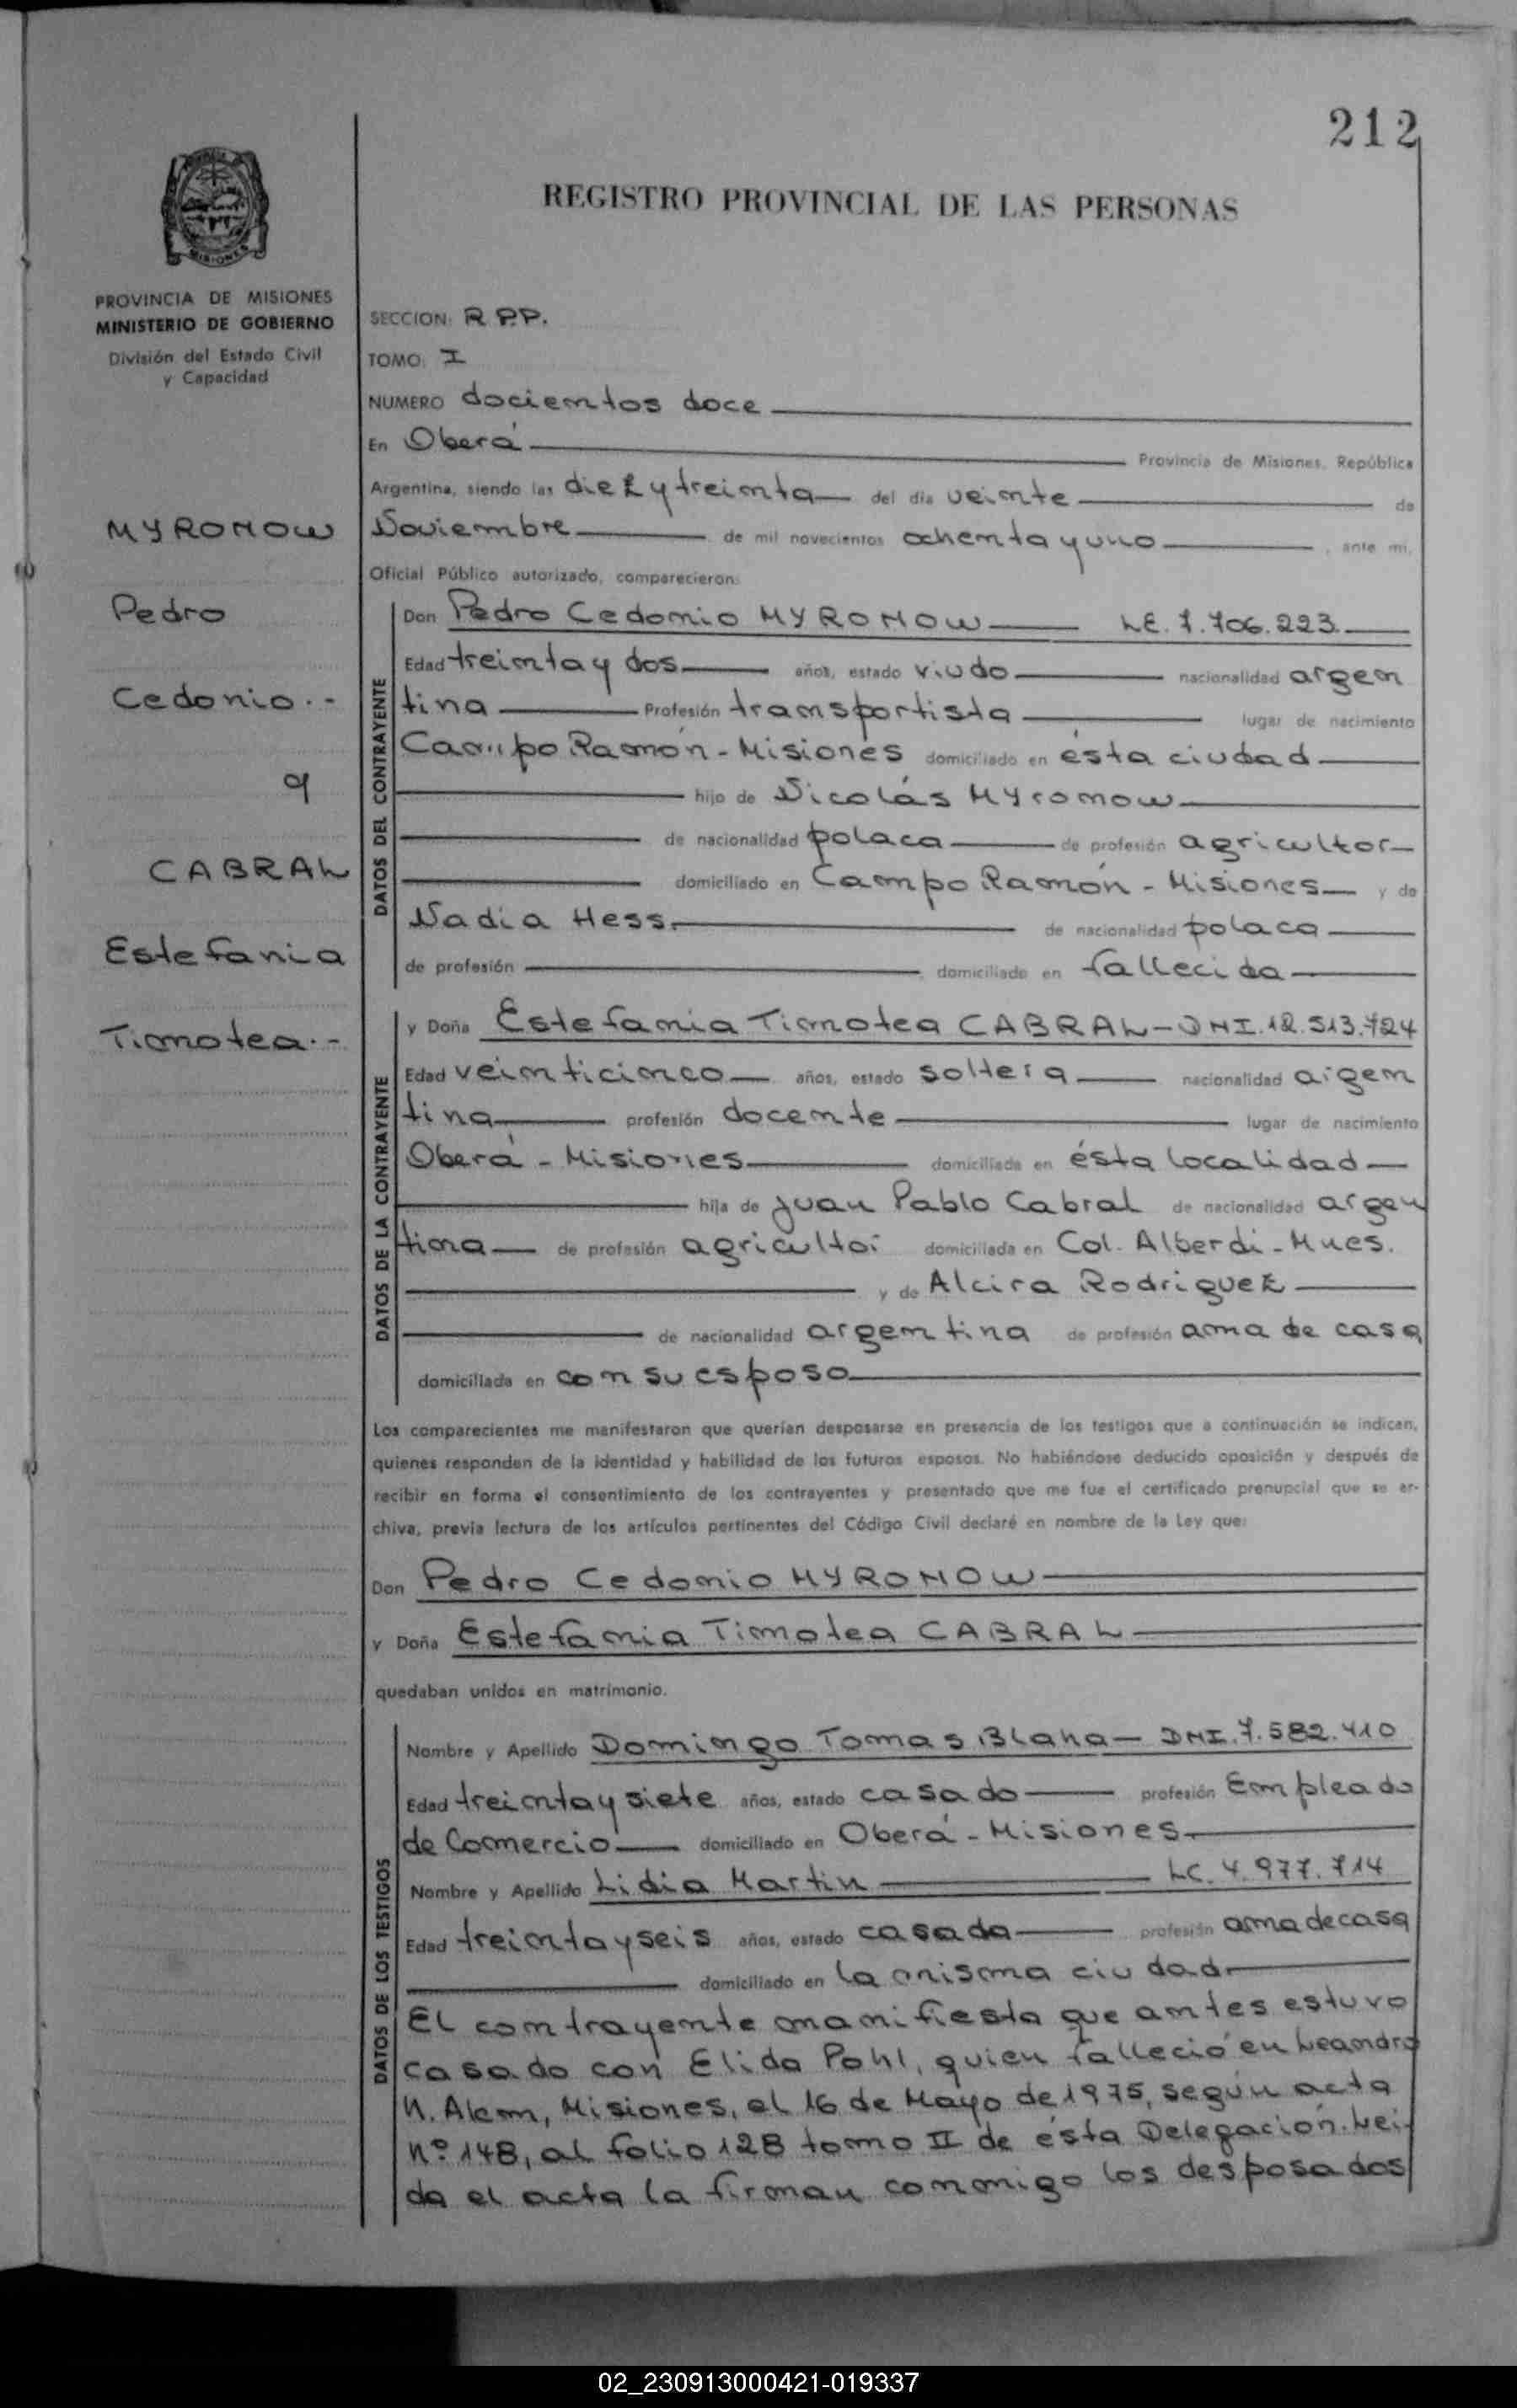 212
REGISTRO PROVINCIAL DE LAS PERSONAS
MISIONES
PROVINCIA DE MISIONES
MINISTERIO DE GOBIERNO
División del Estado Civil
y Capacidad
MYRONOW
Pedro
Cedonio.-
y
CABRAL
Estefania
Timotea.-
SECCION: R.P.P.
TOMO: I
NUMERO docientos doce
En Oberá Provincia de Misiones, República
Argentina, siendo las diez y treinta del día veinte de
Noviembre de mil novecientos ochenta y uno, ante mí,
Oficial Público autorizado, comparecieron:
DATOS DEL CONTRAYENTE
Don Pedro Cedonio MYRONOW L.E. 7.706.223
Edad treinta y dos años, estado viudo nacionalidad argen
tina Profesión transportista lugar de nacimiento
Campo Ramón - Misiones domiciliado en ésta ciudad
hijo de Nicolás Myronow
de nacionalidad polaca de profesión agricultor
domiciliado en Campo Ramón - Misiones y de
Nadia Hess. de nacionalidad polaca
de profesión domiciliada en fallecida
DATOS DE LA CONTRAYENTE
y Doña Estefania Timotea CABRAL - DNI. 12.513.724
Edad veinticinco años, estado soltera nacionalidad argen
tina profesión docente lugar de nacimiento
Oberá - Misiones domiciliada en ésta localidad
hija de Juan Pablo Cabral de nacionalidad argen
tina de profesión agricultor domiciliada en Col. Alberdi - Mnes.
y de Alcira Rodriguez
de nacionalidad argentina de profesión ama de casa
domiciliada en con su esposo
Los comparecientes me manifestaron que querían desposarse en presencia de los testigos que a continuación se indican,
quienes responden de la identidad y habilidad de los futuros esposos. No habiéndose deducido oposición y después de
recibir en forma el consentimiento de los contrayentes y presentado que me fue el certificado prenupcial que se ar-
chiva, previa lectura de los artículos pertinentes del Código Civil declaré en nombre de la Ley que:
Don Pedro Cedonio MYRONOW
y Doña Estefania Timotea CABRAL
quedaban unidos en matrimonio.
DATOS DE LOS TESTIGOS
Nombre y Apellido Domingo Tomas Blaha - DNI. 7.582.410
Edad treinta y siete años, estado casado profesión Empleado
de Comercio domiciliado en Oberá - Misiones.
Nombre y Apellido Lidia Martin LC. 4.977.714
Edad treinta y seis años, estado casada profesión ama de casa
domiciliado en la misma ciudad.
El contrayente manifiesta que antes estuvo
casado con Elida Pohl, quien falleció en Leandro
N. Alem, Misiones, el 16 de Mayo de 1975, según acta
nº 148, al folio 128 tomo II de ésta Delegación. Leí-
da el acta la firman conmigo los desposados
02_230913000421-019337